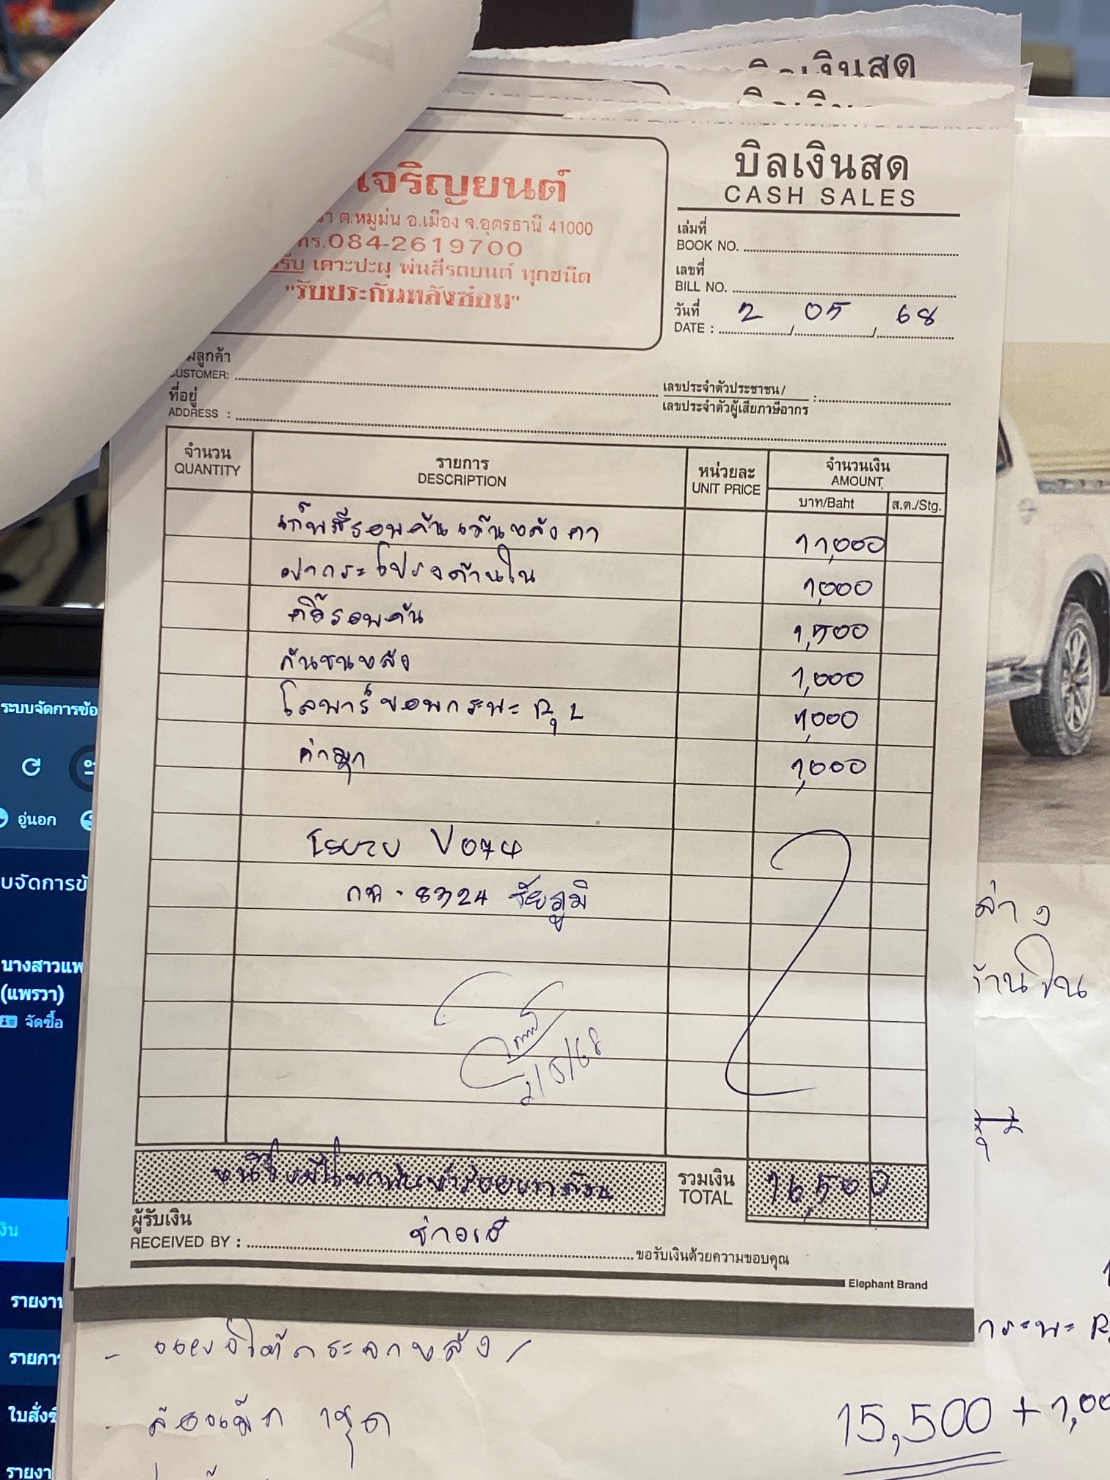 บิลเงินสด
บิลเงินสด
บิลเงินสด
CASH SALES
เจริญยนต์
ต.หมูม่น อ.เมือง จ.อุดรธานี 41000
โทร.084-2619700
รับ เคาะปะผุ พ่นสีรถยนต์ ทุกชนิด
"รับประกันหลังซ่อม"
เล่มที่
BOOK NO.
เลขที่
BILL NO.
วันที่ 2 05 68
DATE : / /
ลูกค้า
CUSTOMER:
ที่อยู่
ADDRESS :
เลขประจำตัวประชาชน/
เลขประจำตัวผู้เสียภาษีอากร :
จำนวน
QUANTITY
รายการ
DESCRIPTION
หน่วยละ
UNIT PRICE
จำนวนเงิน
AMOUNT
บาท/Baht ส.ต./Stg.
เก็บสีรอบคันเว้นหลังคา 11,000
ฝากระโปรงด้านใน 1,000
คิ้วรอบคัน 1,500
กันชนหลัง 1,000
โลบาร์ขอบกระบะ R, L 1,000
ค่ามุก 1,000
V074
กท - 8324 ชัยภูมิ
2/5/68
รวมเงิน
TOTAL 16,500
ผู้รับเงิน
RECEIVED BY : ช่างเอ๋ ขอรับเงินด้วยความขอบคุณ
Elephant Brand
ระบบจัดการข้อ
อู่นอก
บจัดการข้
นางสาวแพ
(แพรวา)
จัดซื้อ
งิน
รายงาน
รายการ
ใบสั่งซื้
รายงา
ล่าง
ด้านใน
กระบะ R,
กระจกหลัง
15,500 + 1,00